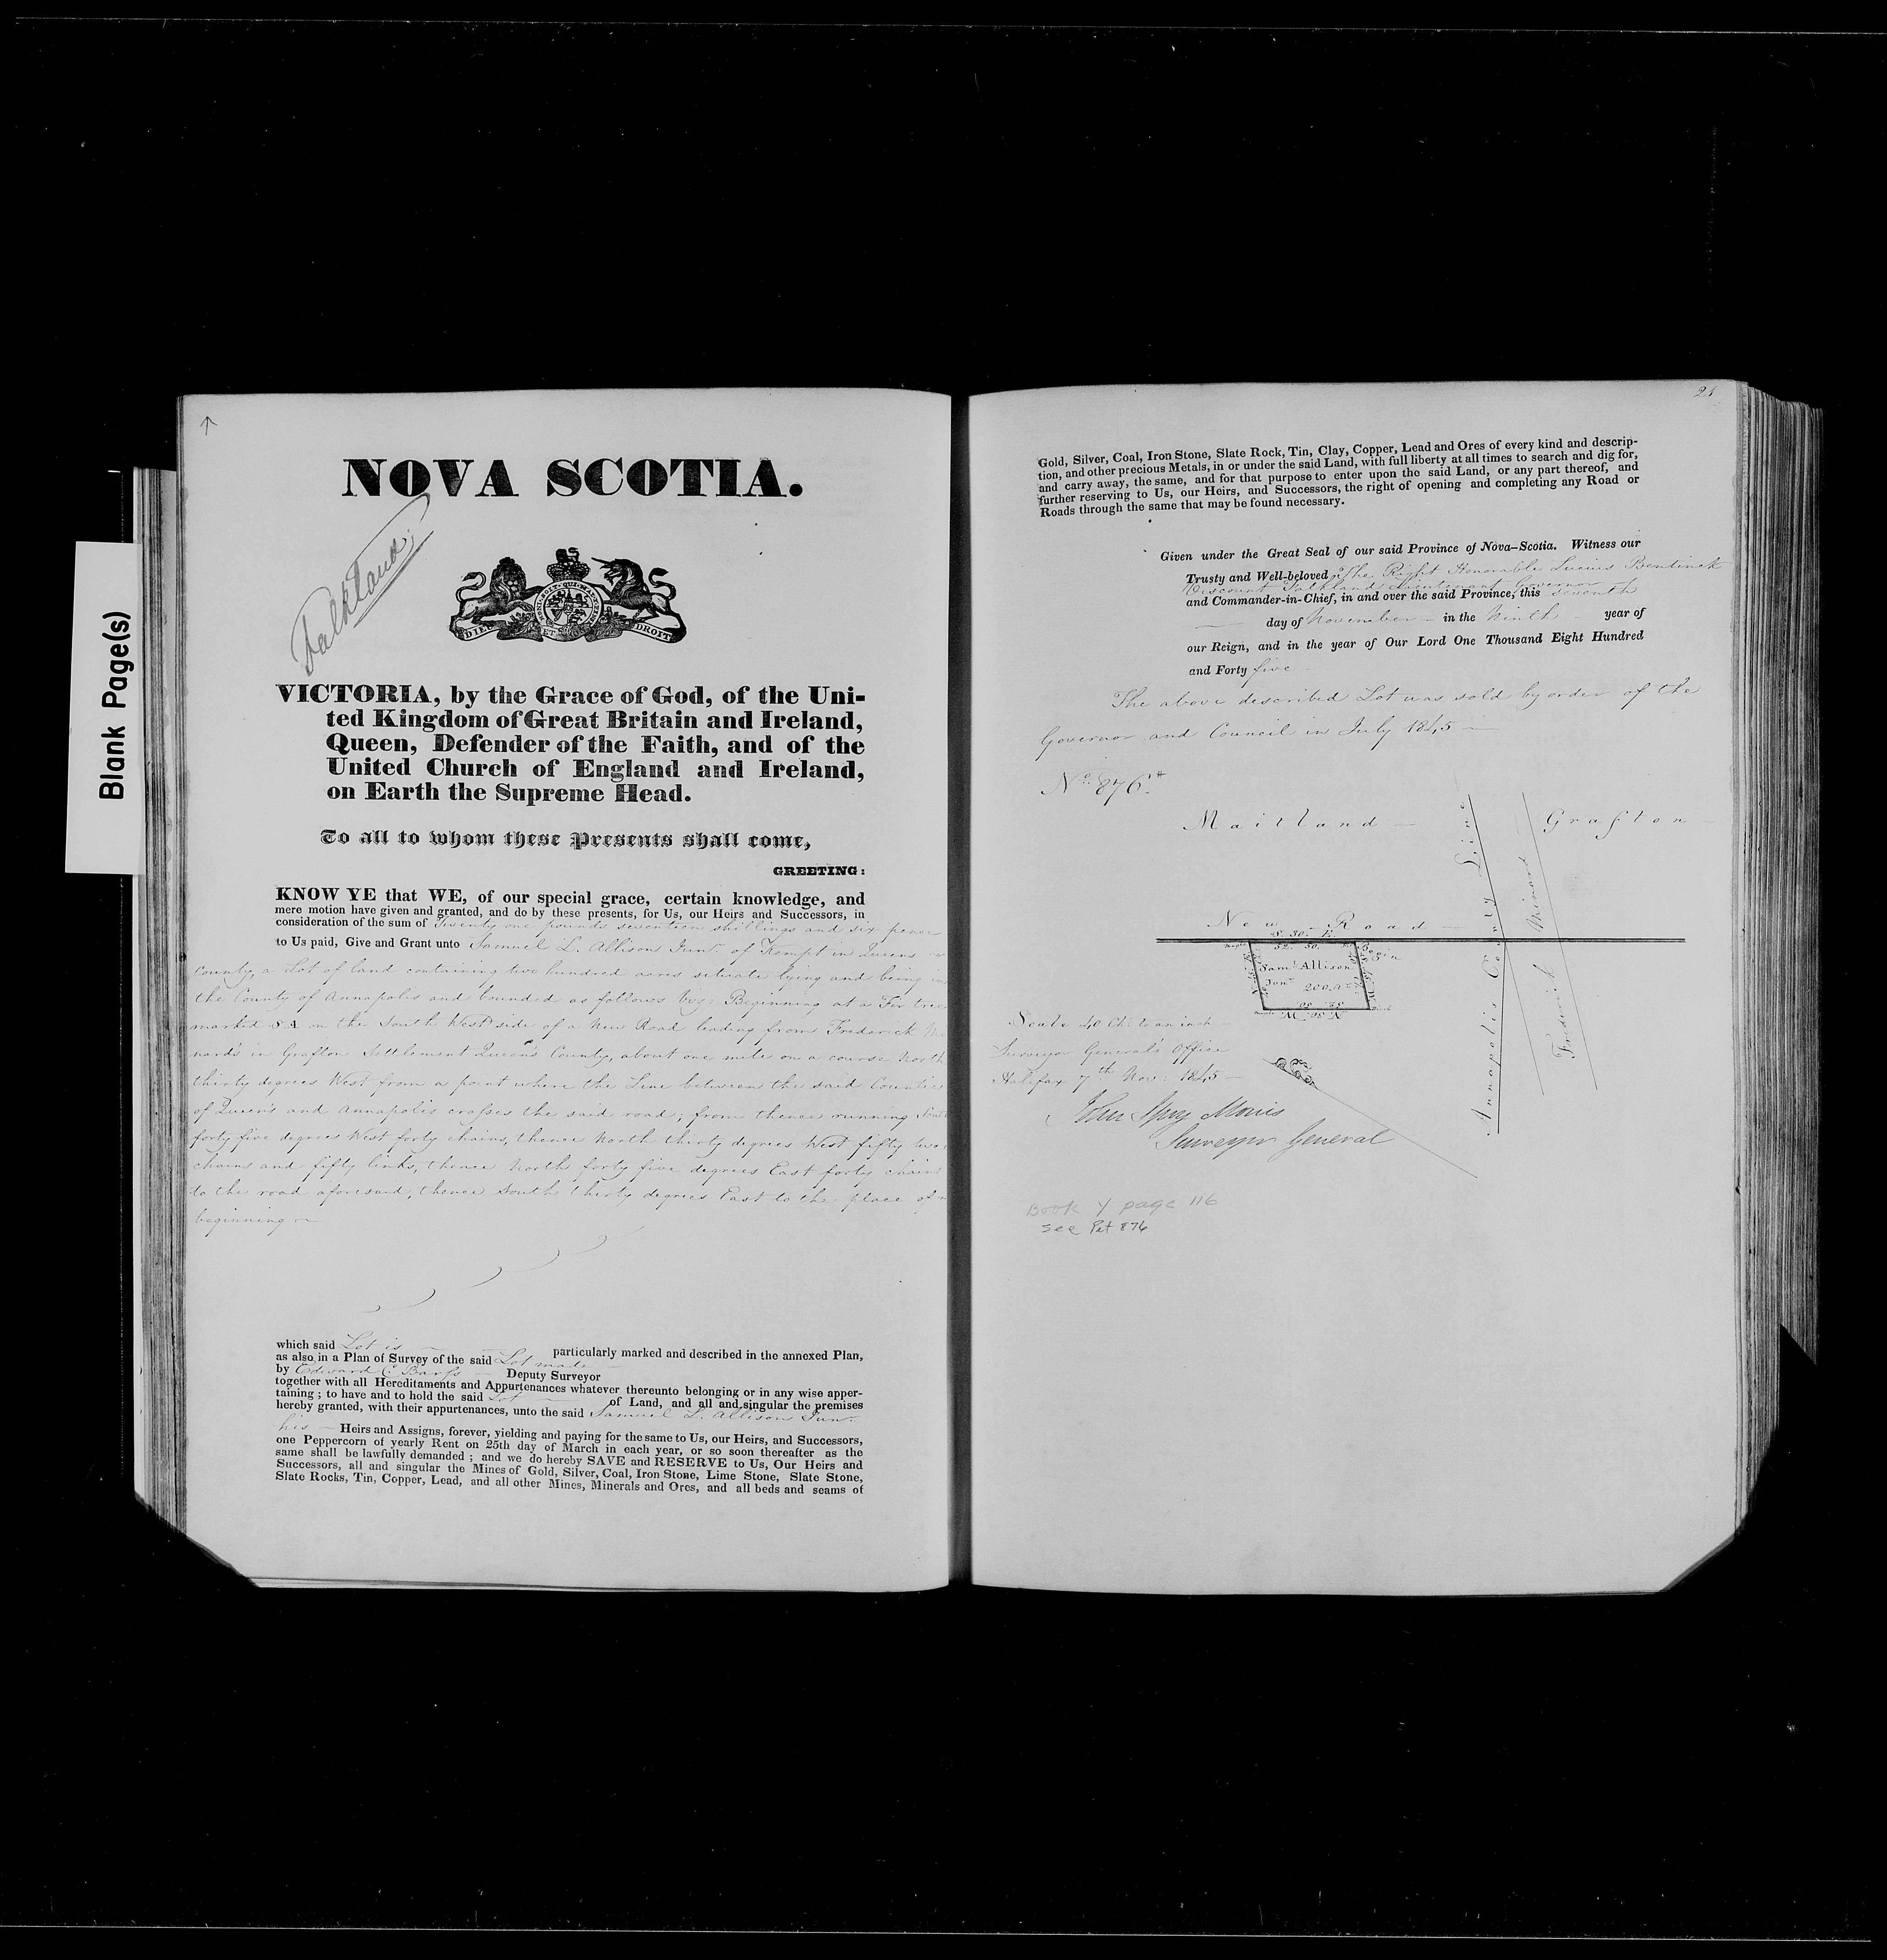 Blank Page(s)
NOVA SCOTIA.
Falkland
MONI SOIT QUI MAL Y PENSE
DIEU ET MON DROIT
VICTORIA, by the Grace of God, of the Uni-
ted Kingdom of Great Britain and Ireland,
Queen, Defender of the Faith, and of the
United Church of England and Ireland,
on Earth the Supreme Head.
To all to whom these Presents shall come,
GREETING:
KNOW YE that WE, of our special grace, certain knowledge, and
mere motion have given and granted, and do by these presents, for Us, our Heirs and Successors, in
consideration of the sum of Twenty one pounds seventeen shillings and six pence
to Us paid, Give and Grant unto Samuel L. Allison Junr. of Kempt in Queens
County, a Lot of land containing two hundred acres situate lying and being in
the County of Annapolis and bounded as follows Viz: Beginning at a Fir tree
marked S A on the South West side of a New Road leading from Frederick Mi
nard's in Grafton Settlement Queen's County, about one mile on a course North
thirty degrees West from a point where the Line between the said Counties
of Queen's and Annapolis crosses the said road; from thence running South
forty five degrees West forty chains, thence North thirty degrees West fifty two
chains and fifty links, thence North forty five degrees East forty chains
to the road aforesaid, thence South thirty degrees East to the place of
beginning
which said Lot is particularly marked and described in the annexed Plan,
as also in a Plan of Survey of the said Lot made
by Edward C Barss Deputy Surveyor
together with all Hereditaments and Appurtenances whatever thereunto belonging or in any wise apper-
taining; to have and to hold the said Lot of Land, and all and singular the premises
hereby granted, with their appurtenances, unto the said Samuel L. Allison Junr.
his Heirs and Assigns, forever, yielding and paying for the same to Us, our Heirs, and Successors,
one Peppercorn of yearly Rent on 25th day of March in each year, or so soon thereafter as the
same shall be lawfully demanded; and we do hereby SAVE and RESERVE to Us, Our Heirs and
Successors, all and singular the Mines of Gold, Silver, Coal, Iron Stone, Lime Stone, Slate Stone,
Slate Rocks, Tin, Copper, Lead, and all other Mines, Minerals and Ores, and all beds and seams of
Gold, Silver, Coal, Iron Stone, Slate Rock, Tin, Clay, Copper, Lead and Ores of every kind and descrip-
tion, and other precious Metals, in or under the said Land, with full liberty at all times to search and dig for,
and carry away, the same, and for that purpose to enter upon the said Land, or any part thereof, and
further reserving to Us, our Heirs, and Successors, the right of opening and completing any Road or
Roads through the same that may be found necessary.
Given under the Great Seal of our said Province of Nova-Scotia. Witness our
Trusty and Well-beloved The Right Honorable Lucius Bentinck
Viscount Falkland Lieutenant Governor
and Commander-in-Chief, in and over the said Province, this seventh
day of November in the Ninth year of
our Reign, and in the year of Our Lord One Thousand Eight Hundred
and Forty five
The above described Lot was sold by order of the
Governor and Council in July 1845
No. 876
Maitland
Grafton
New Road
S. 30. E.
52. 50.
Begin
Saml. Allison
Junr. 200.A
52. 50
N. 30. W.
Annapolis County Line
Frederick Minard
Scale 40 Ch: to an inch
Surveyor General's Office
Halifax 7th Nov: 1845
John Spry Morris
Surveyor General
Book Y page 116
see Pet 876